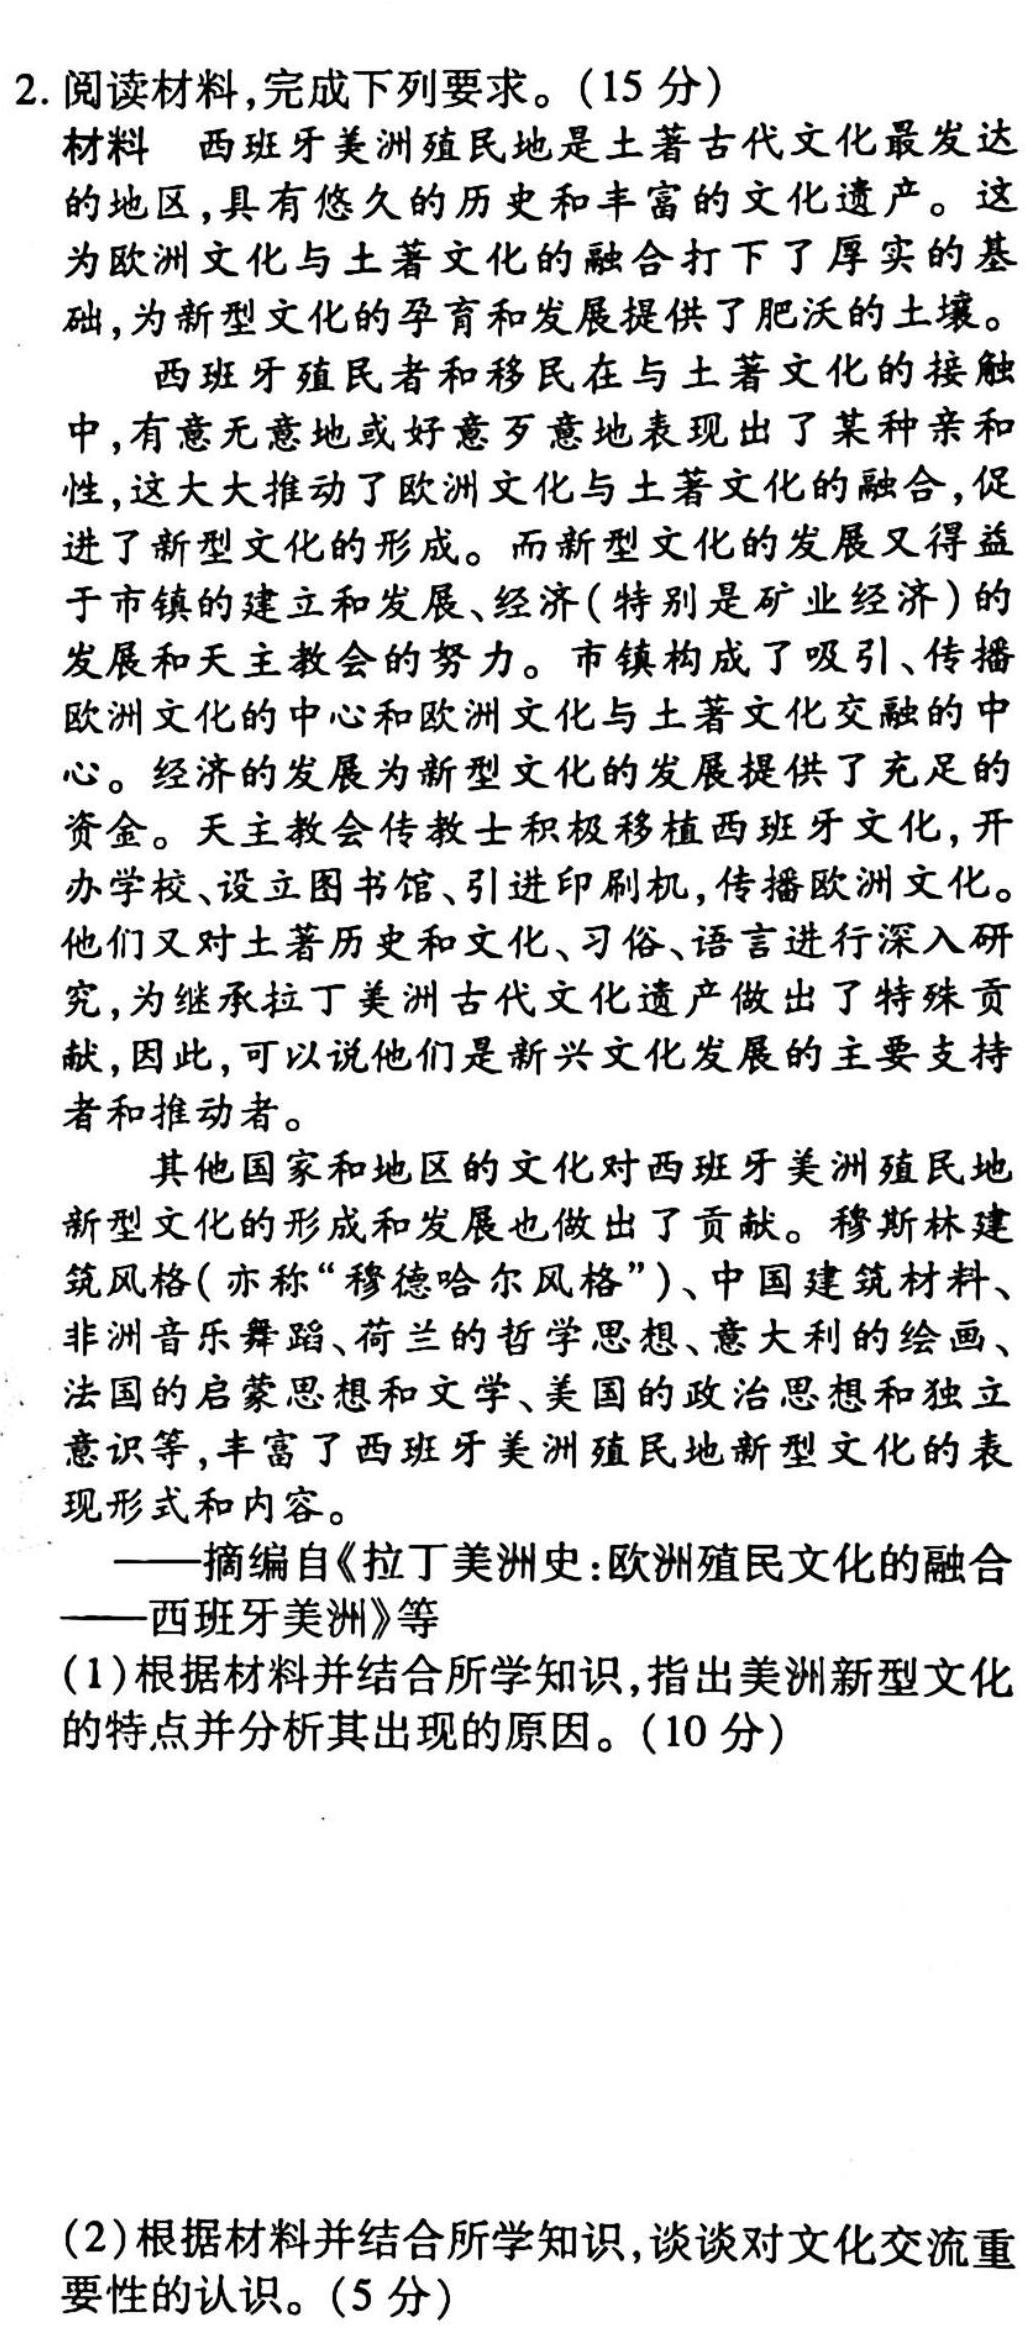 2. 阅读材料,完成下列要求。(15 分)
材料　西班牙美洲殖民地是土著古代文化最发达
的地区,具有悠久的历史和丰富的文化遗产。这
为欧洲文化与土著文化的融合打下了厚实的基
础,为新型文化的孕育和发展提供了肥沃的土壤。
西班牙殖民者和移民在与土著文化的接触
中,有意无意地或好意歹意地表现出了某种亲和
性,这大大推动了欧洲文化与土著文化的融合,促
进了新型文化的形成。而新型文化的发展又得益
于市镇的建立和发展、经济(特别是矿业经济)的
发展和天主教会的努力。市镇构成了吸引、传播
欧洲文化的中心和欧洲文化与土著文化交融的中
心。经济的发展为新型文化的发展提供了充足的
资金。天主教会传教士积极移植西班牙文化,开
办学校、设立图书馆、引进印刷机,传播欧洲文化。
他们又对土著历史和文化、习俗、语言进行深入研
究,为继承拉丁美洲古代文化遗产做出了特殊贡
献,因此,可以说他们是新兴文化发展的主要支持
者和推动者。
其他国家和地区的文化对西班牙美洲殖民地
新型文化的形成和发展也做出了贡献。穆斯林建
筑风格(亦称“穆德哈尔风格”)、中国建筑材料、
非洲音乐舞蹈、荷兰的哲学思想、意大利的绘画、
法国的启蒙思想和文学、美国的政治思想和独立
意识等,丰富了西班牙美洲殖民地新型文化的表
现形式和内容。
——摘编自《拉丁美洲史:欧洲殖民文化的融合
——西班牙美洲》等
(1)根据材料并结合所学知识,指出美洲新型文化
的特点并分析其出现的原因。(10 分)
(2)根据材料并结合所学知识,谈谈对文化交流重
要性的认识。(5 分)